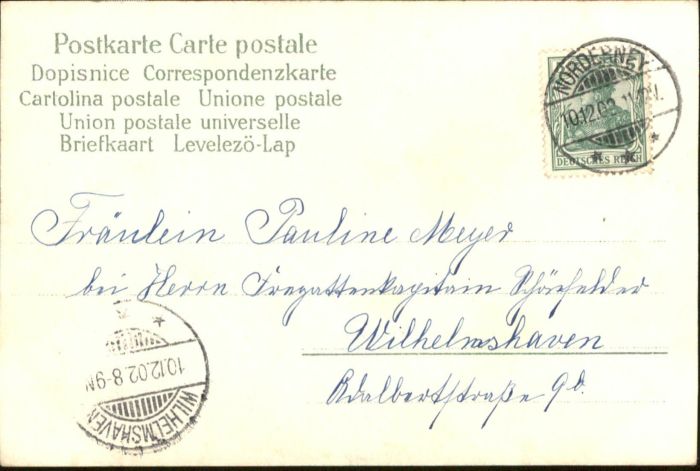 Postkarte Carte postale
Dopisnice Correspondenzkarte
Cartolina postale Unione postale
Union postale universelle
Briefkaart Levelezö-Lap
NORDERNEY
10.12.02. 11-12V.
DEUTSCHES REICH
Fräulein Pauline Meyer
bei Herrn Fregattenkapitain Schönfelder
Wilhelmshaven
Adalbertstraße 9b.
10.12.02.8-9N
WILHELMSHAVEN